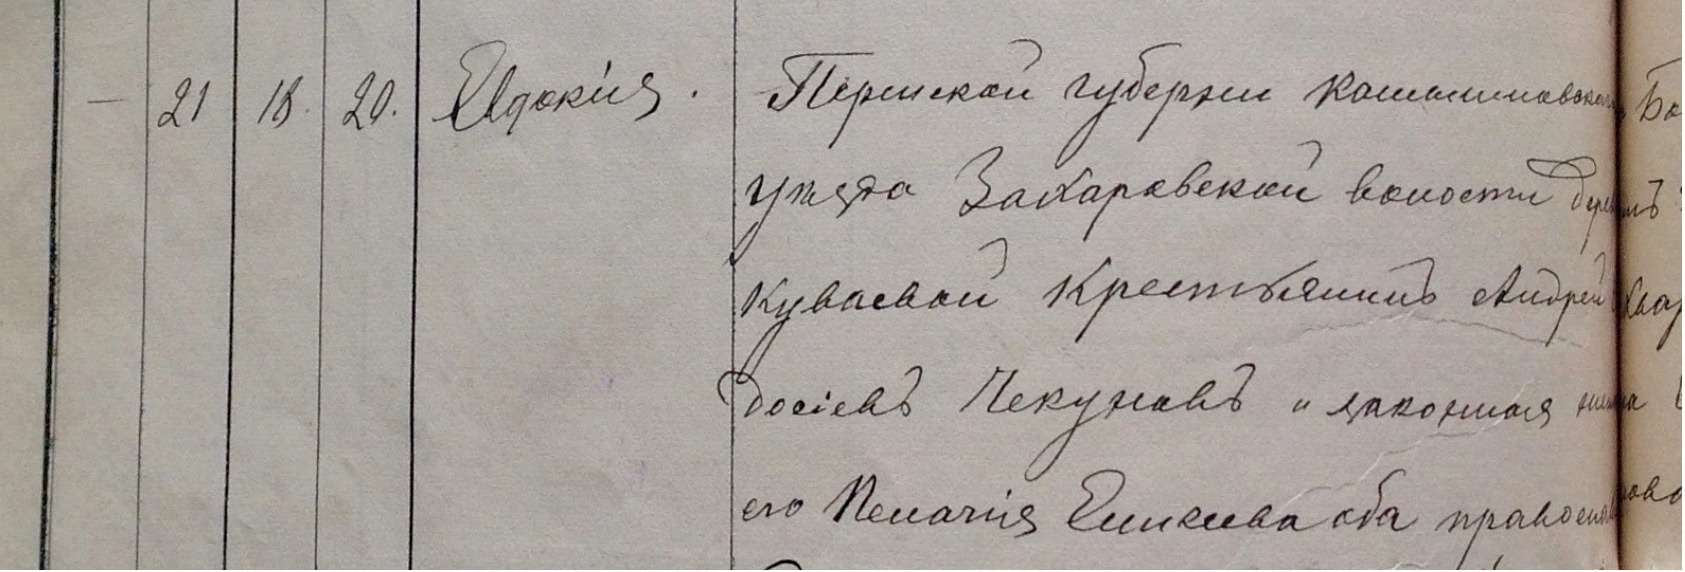 — 21 18. 20. Евдокія. Пермской губерніи Камышловскаго
уѣзда Захаровской волости дерев
Куваевой крестьянинъ Андрей
досіевъ Чекуновъ и законная жена
его Пелагія Елисеева оба православ